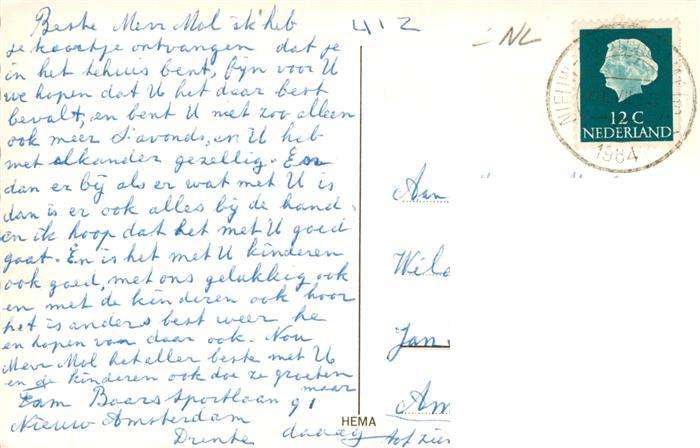 Beste Mevr Mol ik heb
je kaartje ontvangen dat je
in het tehuis bent, fijn voor U
we hopen dat U het daar best
bevalt, en bent U niet zoo alleen
ook meer S'avonds, en U heb
met elkander gezellig. En
dan er bij als er wat met U is
dan is er ook alles bij de hand.
en ik hoop dat het met U goed
gaat. En is het met U kinderen
ook goed, met ons gelukkig ook
en met de kinderen ook hoor
het is anders best weer he
en hopen van daar ook. Nou
Mevr Mol het aller beste met U
en de kinderen ook doe ze groeten
maar
Fam Baars Sportlaan 91
Nieuw Amsterdam
Drente daaag
412
NL
12 C
NEDERLAND
NIEUW
1964
Aan
Wil
Jan
Am
HEMA